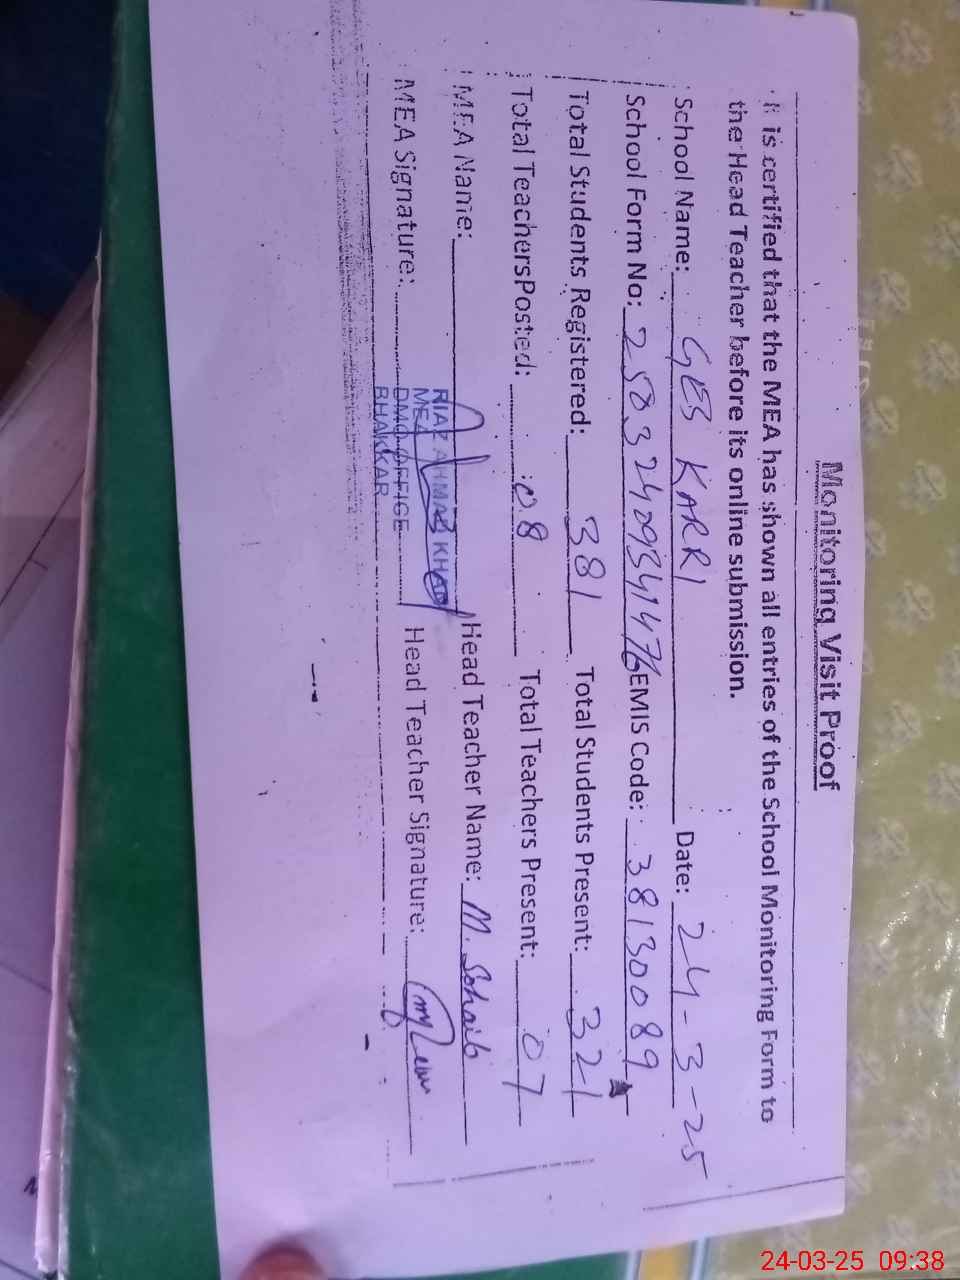 Monitoring Visit Proof
It is certified that the MEA has shown all entries of the School Monitoring Form to
the Head Teacher before its online submission.
School Name: GES KARRI Date: 24-3-25
School Form No: 25032409341476 EMIS Code: 38130089
Total Students Registered: 381 Total Students Present: 321
Total TeachersPosted: 08 Total Teachers Present: 07
MEA Name: RIAZ AHMAD KHAN Head Teacher Name: M. Sohaib
MEA
MEA Signature: DMO OFFICE Head Teacher Signature:
BHAKKAR
24-03-25 09:38